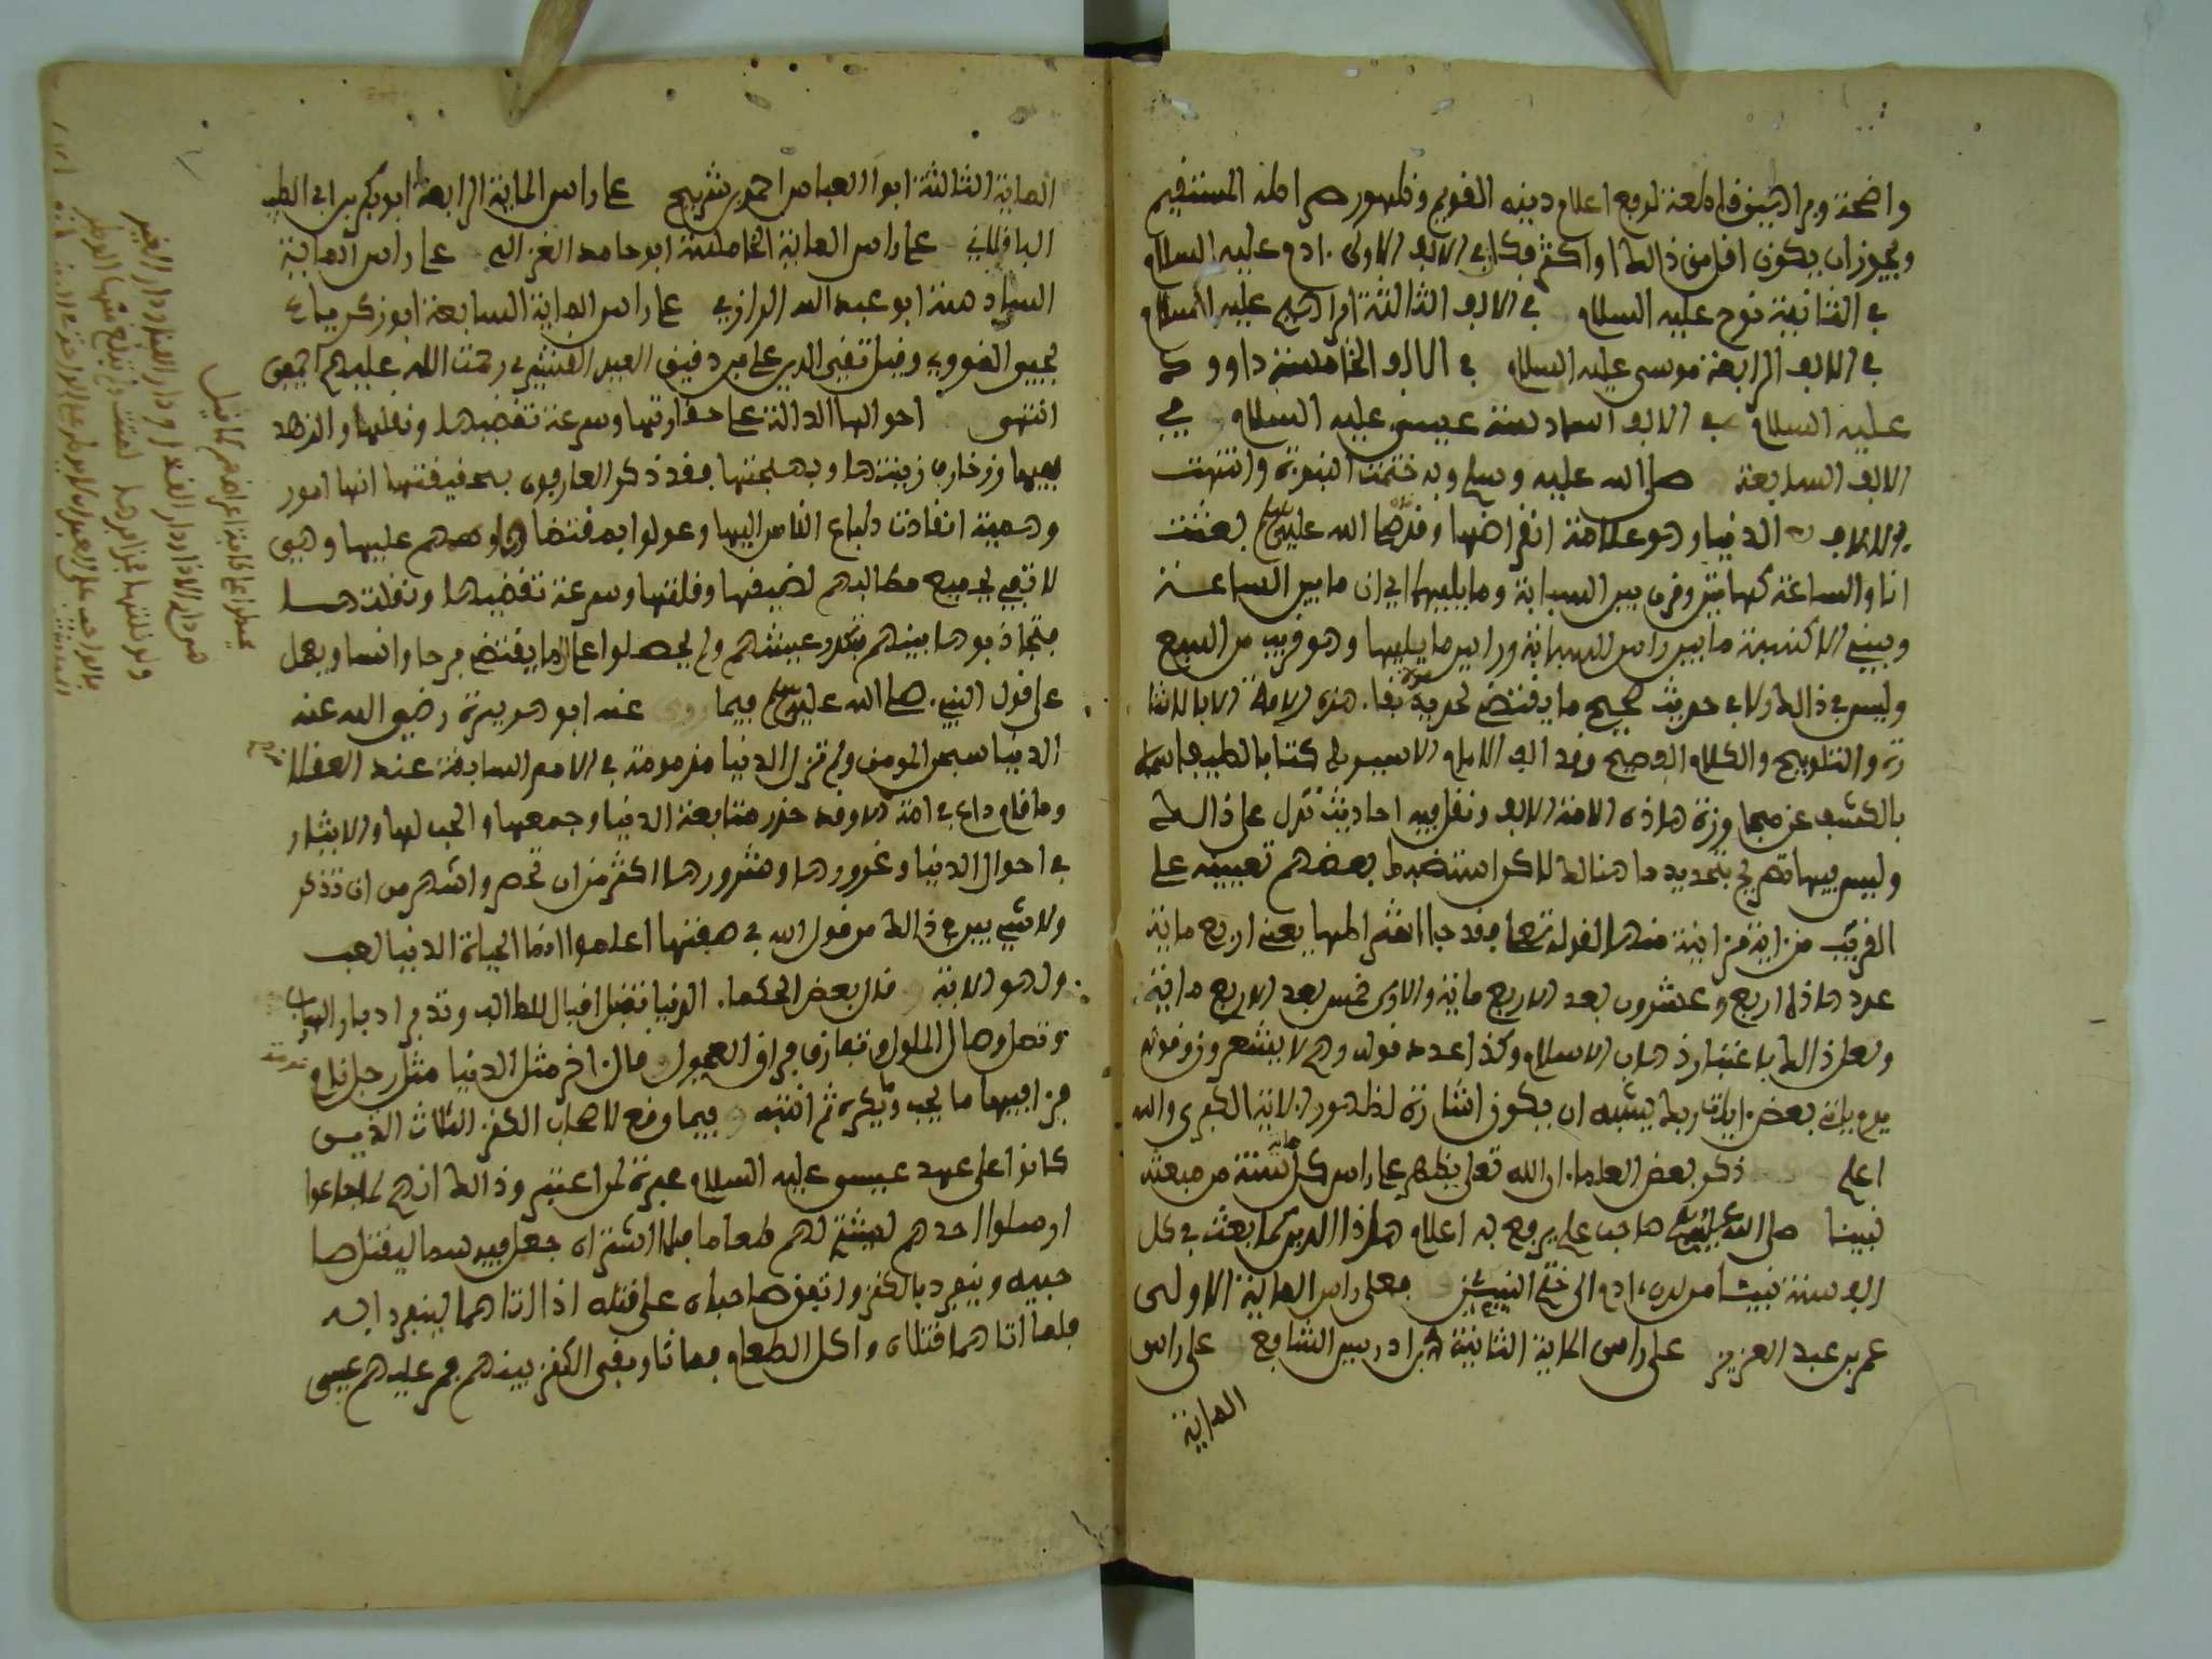 واضحة وبراهين قاطعة لرفع اعلام دينه القويم وظهور صراطه المستقيم
ويجوز ان يكون اقل من ذالك او اكثر فكان في الالف الاولى ادم عليه السلام
في الثانية نوح عليه السلام في الالف الثالثة ابراهيم عليه السلام
في الالف الرابعة موسى عليه السلام في الالف الخامسة داوود
عليه السلام في الالف السادسة عيسى عليه السلام في
الالف السابعة صلى الله عليه وسلم وبه ختمت النبوة وانتهت
الدنيا وهو علامة انقراضها صلى الله عليه وسلم بعثت
انا والساعة كهاتين وفرق بين السبابة وما يليها اي ان ما بين الساعة
وبيني الا كنسبة ما بين راس السبابة وراس ما يليها وهو قريب من السبع
وليس في ذالك ولا في حديث صحيح ما يقتضي تحديد مدة بقاء هذه الامة الا بالاشا
رة والتلويح والكلام الفصيح وقد الف الامام الاسيوطي كتابا لطيفا سماه
بالكشف عن مجاوزة هاذه الامة الالف ونقل فيه احاديث تدل على ذالك
وليس فيها تصريح بتحديد ما هنالك لاكن استضبط بعضهم تعيينه على
القريب من اية من اية منها لقوله تعلى فقد جا اشراطها يعني اربع ماية
عدد هاذا اربع وعشرون بعد الاربع ماية والاولى خمس بعد الاربع ماية
ولعل ذالك باعتبار ذهاب الاسلام وكذا عدد قوله وهم لا يشعرون وقوله
يوم ياتي بعض ايات ربك يشبه ان يكون اشارة لظهور الاية الكبرى والله
اعلم ذكر بعض العلماء ان الله تعلى يظهر على راس كل ماية سنة من مبعث
نبينا صلى الله عليه وسلم صاحب علم يرفع به اعلام هاذا الدين كما بعث في كل
الف سنة نبيئا من لدن ادم الى ختم النبيئين فعلى راس الماية الاولى
عمر بن عبد العزيز على راس الماية الثانية ادريس الشافعي على راس
الماية
الماية الثالثة ابوا العباس احمد بن شريح على راس الماية الرابعة ابو بكر بن ابي الطيب
الباقلاني على راس الماية الخامسة ابو حامد الغزالي على راس الماية
السادسة ابو عبد الله الرازي على راس الماية السابعة ابو زكرياء
يحيى النووي وقيل تقي الدين علي بن دقيق العيد القشيري رحمت الله عليهم اجمعين
انتهى احوالها الدالة على حقارتها وسرعة تقضيها وتقلبها والزهد
فيها وزخارف زينتها وبهجتها فقد ذكر العارفون بحقيقتها انها امور
وهمية انقادت طباع الناس اليها وعولوا بمقتضا عليها وهي
لا تفي بجميع مطالبهم لضيقها وقلتها وسرعة تقضيها وتفلتها
فتجاذبوها بينهم فتكدر عيشهم ولم يحصلوا على ما يقتضي فرحا وانسا ويحمل
على قول النبي صلى الله عليه وسلم فيما عنه ابو هريرة رضي الله عنه
الدنيا سجن المومن ولم تزل الدنيا مذمومة في الامم السابقة عند العقلا
وما قام داع في امة الا وقد حذر متابعة الدنيا وجمعها والحب لها والايثار
في احوال الدنيا وغرورها وشرورها اكثر من ان تحصر واشهر من ان تذكر
ولا شيء ابين في ذالك من قول الله في صفتها اعلموا انما الحياة الدنيا لعب
ولهو الاية قال بعض الحكماء الدنيا تقبل اقبال الطالب وتدبر ادبار الهارب
وتصل وصال الملول وتفارق فراق العجول قال اخر مثل الدنيا مثل رجل نام
فرا فيها ما يحب وما يكره ثم انتبه فيما وقع لاصحاب الكنز الثلاث الذين
كانوا على عهد عيسى عليه السلام عبرة لمن اعتبر وذالك انهم لما جاعوا
ارسلوا احدهم ليشتري لهم طعاما فلما اشتراه جعل فيه سما ليقتل صا
حبيه وينفرد بالكنز واتفق صاحباه على قتله اذا اتاهما لينفرد ابه
فلما اتاهما قتلاه واكل الطعام فماتا وبقي الكنز بينهم فمر عليهم عيسى
كما قيل
هي دار الاذا ودار القذا ودار الفنا ودار الغير
ولو نلتها بحذافيرها لمت ولم تقض منها الوطر